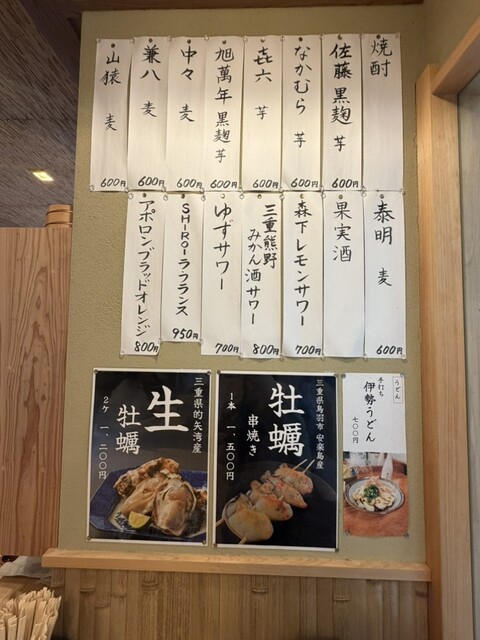 焼酎
佐藤黒麹 芋 600円
なかむら 芋 600円
㐂六 芋 600円
旭萬年黒麹 芋 600円
中々 麦 600円
兼八 麦 600円
山猿 麦 600円
泰明 麦 600円
果実酒
森下レモンサワー 700円
三重熊野
みかん酒サワー 800円
ゆずサワー 700円
SHiRoiラフランス 950円
アポロンブラッドオレンジ 800円
うどん
手打ち
伊勢うどん
七〇〇円
三重県鳥羽市 安楽島産
牡蠣
串焼き
1本 一、五〇〇円
三重県的矢湾産
生
牡蠣
2ケ 一、二〇〇円